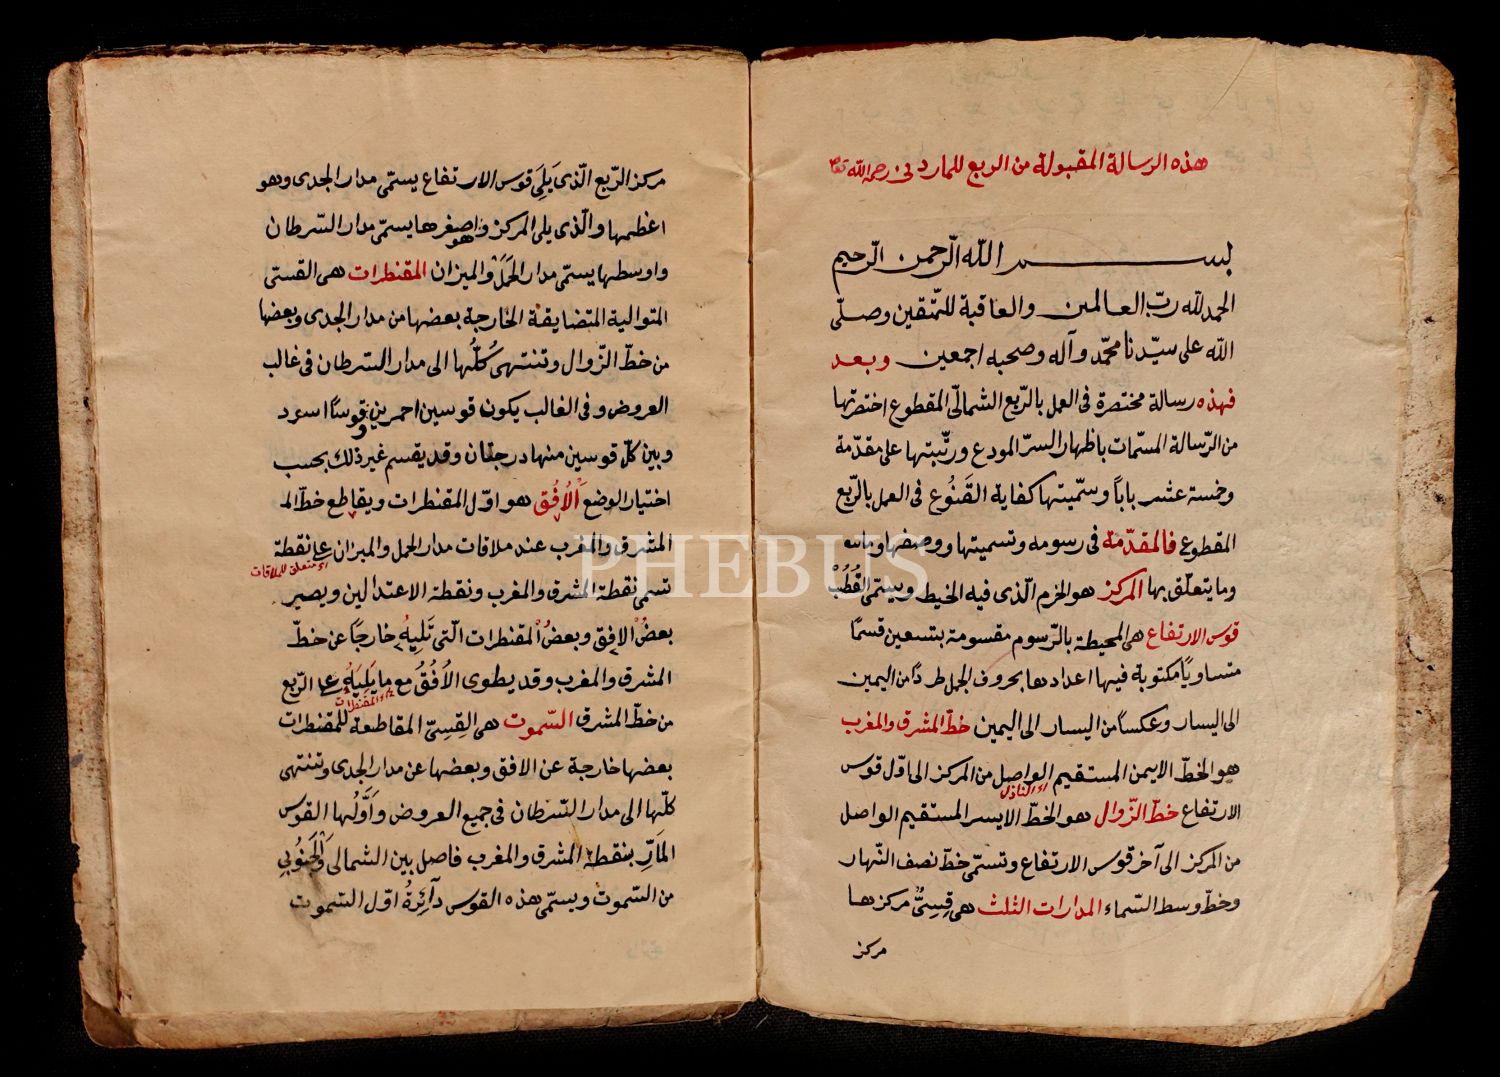 هذه الرسالة المقبولة من الربع للماردينى رحمه الله تعالى
بسم الله الرّحمن الرّحيم
الحمد لله ربّ العالمين والعاقبة للمتّقين وصلّى
الله على سيّدنا محمّد وآله وصحبه اجمعين وبعد
فهذه رسالة مختصرة فى العمل بالرّبع الشمالىّ المقطوع اختصرتها
من الرّسالة المسمّات باظهار السرّ المودع ورتّبتها على مقدّمة
وخمسة عشر باباً وسمّيتها كفاية القَنُوع فى العمل بالرّبع
المقطوع فالمقدّمة فى رسومه وتسميتها ووصفها
وما يتعلّق بها المركز هو الخرم الّذى فيه الخيط ويسمّى القُطُبْ
قوس الارتفاع هى المحيطة بالرّسوم مقسومة بتسعين قسمًا
متساويًا مكتوبة فيها اعدادها بحروف الجمل طردًا من اليمين
الى اليسار وعكساً من اليسار الى اليمين خطّ المشرق والمغرب
هو الخطّ الايمن المستقيم الواصل من المركز الى اوّل قوس
اى النازل
الارتفاع خطّ الزّوال هو الخطّ الايسر المستقيم الواصل
من المركز الى آخر قوس الارتفاع وتسمّى خطّ نصف النّهار
وخطّ وسط السّماء المدارات الثلث هى قِسِىٌّ مركزها
مركز
مركز الرّبع الّذى يَلِىَ قوس الارتفاع يسمّى مدار الجدى وهو
اعظمها والّذى يلى المركز وهو اصغرها يسمّى مدار السّرطان
واوسطها يسمّى مدار الحَمَلْ والميزان المقنطرات هى القسىّ
المتوالية المتضايقة الخارجة بعضها من مدار الجدى وبعضها
من خطّ الزّوال وتنتهى كُلُّها الى مدار السّرطان فى غالب
العروض وفى الغالب يكون قوسين احمرين وقوسًا اسود
وبين كلّ قوسين منها درجتان وقد يقسم غير ذلك بحسب
اختيار الوضع اَلْاُفُق هو اوّل المقنطرات ويقاطع خطّ الم
المشرق والمغرب عند ملاقات مدار الحمل والميزان على نقطة
اى متعلق للملاقات
تسمى نقطة المشرق والمغرب ونقطة الاعتدالين ويصير
بعضُ الافق وبعضُ المقنطرات الّتى تَلِيهُ خارجًا عن خطّ
المشرق والمغرب وقد يطوى الاُفُقُ مع ما يَلِيَهُ على الرّبع
اى المقنطرات
من خطّ المشرق السّموت هى القِسِىّ المقاطعة للمقنطرات
بعضها خارجة عن الافق وبعضها عن مدار الجدى وتنتهى
كلّها الى مدار السّرطان فى جميع العروض واَوَّلُها القوس
المَارّ بنقطة المشرق والمغرب فاصل بين الشمالى وَالْجَنُوبِى
من السّموت ويسمّى هذه القوس دآئِرَةُ اوّل السّموت
دائرة
PHEBUS